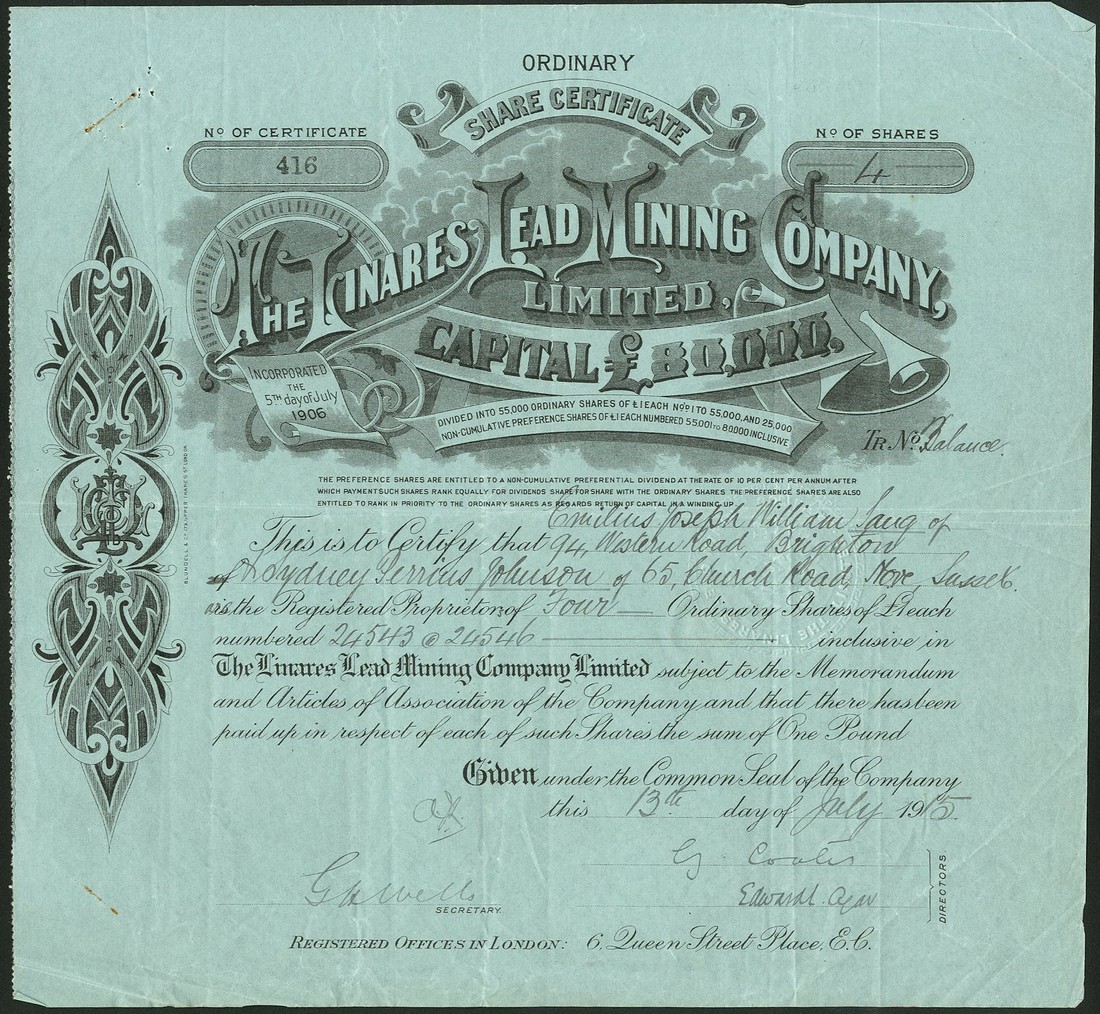 ORDINARY
SHARE CERTIFICATE
No OF CERTIFICATE
416
No OF SHARES
4
THE LINARES LEAD MINING COMPANY,
LIMITED,
CAPITAL £80,000.
INCORPORATED
THE
5TH day of July
1906
DIVIDED INTO 55,000 ORDINARY SHARES OF £1 EACH Nos 1 TO 55,000, AND 25,000
NON-CUMULATIVE PREFERENCE SHARES OF £1 EACH NUMBERED 55,001 TO 80,000 INCLUSIVE
TR. No. Balance.
THE PREFERENCE SHARES ARE ENTITLED TO A NON-CUMULATIVE PREFERENTIAL DIVIDEND AT THE RATE OF 10 PER CENT PER ANNUM AFTER
WHICH PAYMENT SUCH SHARES RANK EQUALLY FOR DIVIDENDS SHARE FOR SHARE WITH THE ORDINARY SHARES THE PREFERENCE SHARES ARE ALSO
ENTITLED TO RANK IN PRIORITY TO THE ORDINARY SHARES AS REGARDS RETURN OF CAPITAL IN A WINDING UP
Emilius Joseph William of
This is to Certify that 94, Western Road, Brighton
Sydney Johnson of 65, Church Road, Hove, Sussex.
the Registered Proprietors of Four Ordinary Shares of £1 each
numbered 24543 @ 24546 inclusive in
The Linares Lead Mining Company Limited subject to the Memorandum
and Articles of Association of the Company and that there has been
paid up in respect of each of such Shares the sum of One Pound
Given under the Common Seal of the Company
this 13th day of July 1915.
G H Wells
SECRETARY.
Edward C. Agar
DIRECTORS.
REGISTERED OFFICES IN LONDON: 6, Queen Street Place, E.C.